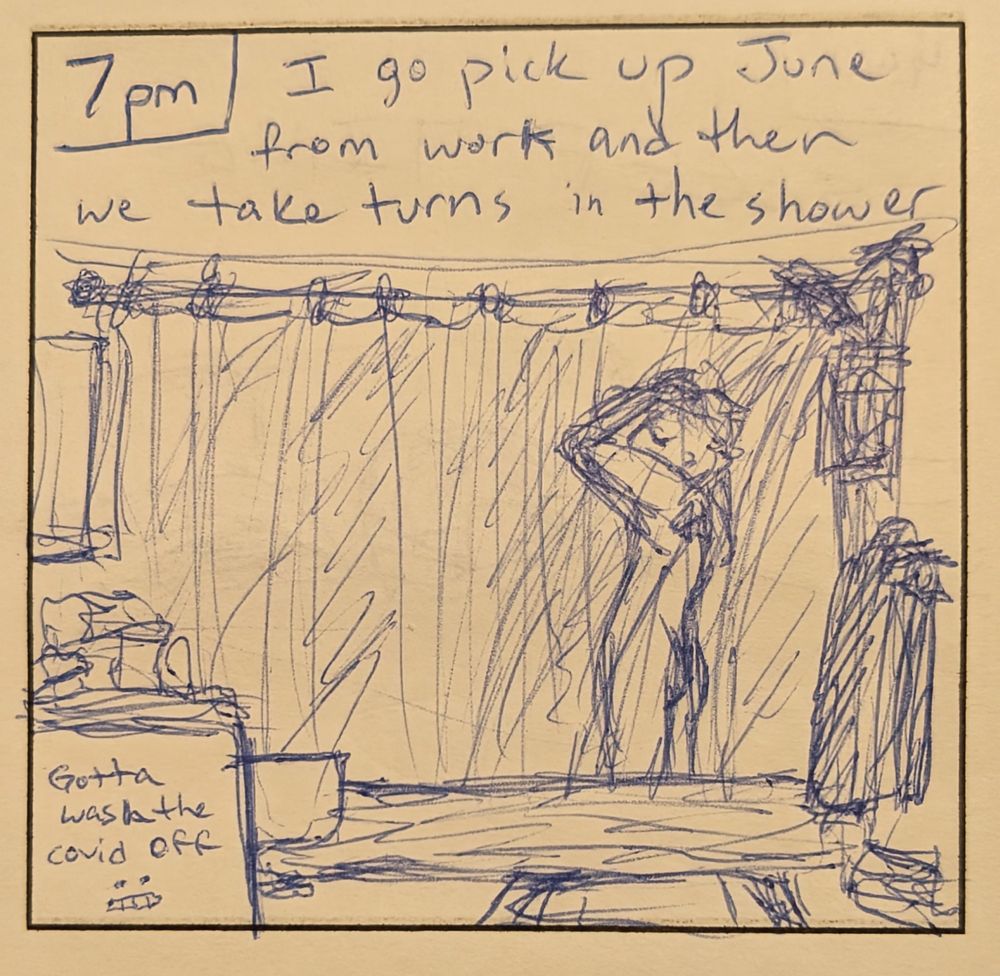 7pm
I go pick up June
from work and then
we take turns in the shower
Gotta
wash the
covid off